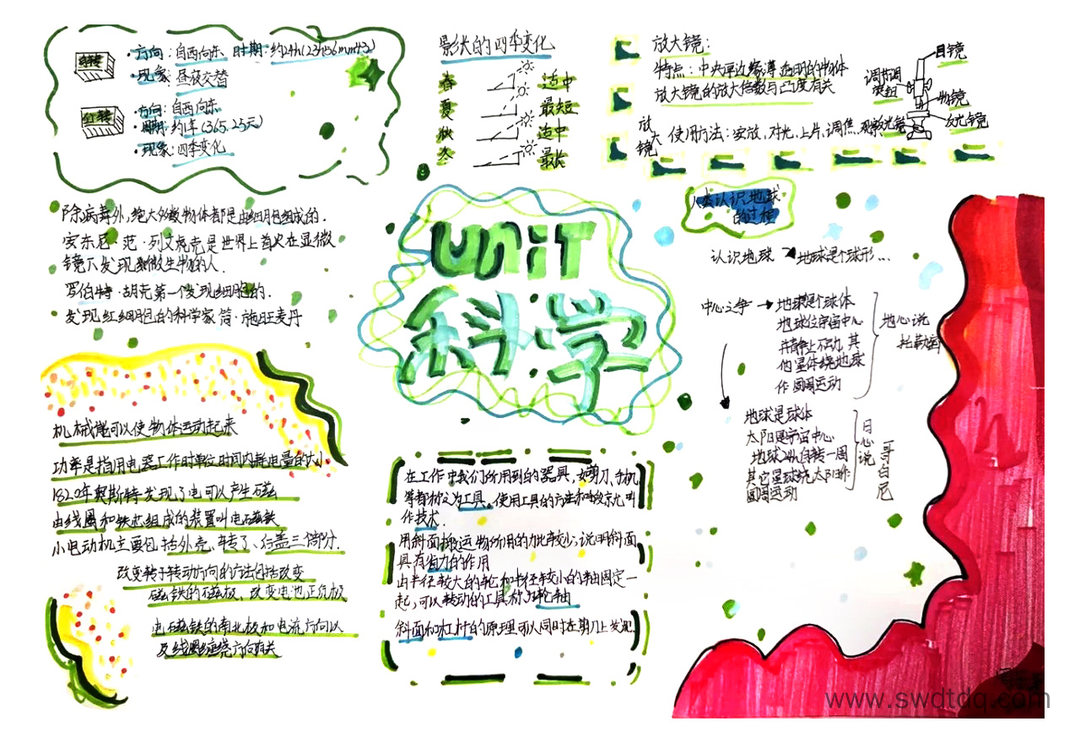 自转
·方向：自西向东 时期：约24h(23h56mm43)
·现象：昼夜交替
公转
·方向：自西向东
·周期：约1年(365.25天)
·现象：四季变化
影长的四季变化
春 适中
夏 最短
秋 适中
冬 最长
放大镜：
特点：中央厚边缘薄透明的物体
放大镜的放大倍数与凸度有关
放大镜
使用方法：安放，对光，上片，调焦，观察
目镜
调节
物镜
反光镜
除病毒外，绝大多数物体都是由细胞组成的．
安东尼·范·列文虎克是世界上首次在显微
镜下发现微生物的人．
罗伯特·胡克第一个发现细胞的．
发现红细胞的科学家简·施旺麦丹
unit
科学
人类认识地球
的过程
认识地球 地球是个球形...
中心之争 地球是个球体
地球位宇宙中心
并静止不动，其
他星体绕地球
作圆周运动
地心说
托勒密
地球是球体
太阳是宇宙中心
地球24h自转一周
其它星球绕太阳作
圆周运动
日心说
哥白尼
机械能可以使物体运动起来
功率是指用电器工作时单位时间内耗电量的大小
1820年奥斯特发现了电可以产生磁
由线圈和铁芯组成的装置叫电磁铁
小电动机主要包括外壳、转子、后盖三部分．
改变转子转动方向的方法包括改变
磁铁的磁极、改变电池正负极
电磁铁的南北极和电流方向以
及线圈缠绕方向有关
在工作中我们所用到的器具，如剪刀、手机
等都称为工具．使用工具的方法和叫
作技术．
用斜面搬运物所用的力比较少，说明斜面
具有省力的作用
由半径较大的轮和半径较小的轴固定一
起，可以转动的工具称为轮轴
斜面和杠杆的原理可以同时在剪刀上发现．
www.swdtdq.com